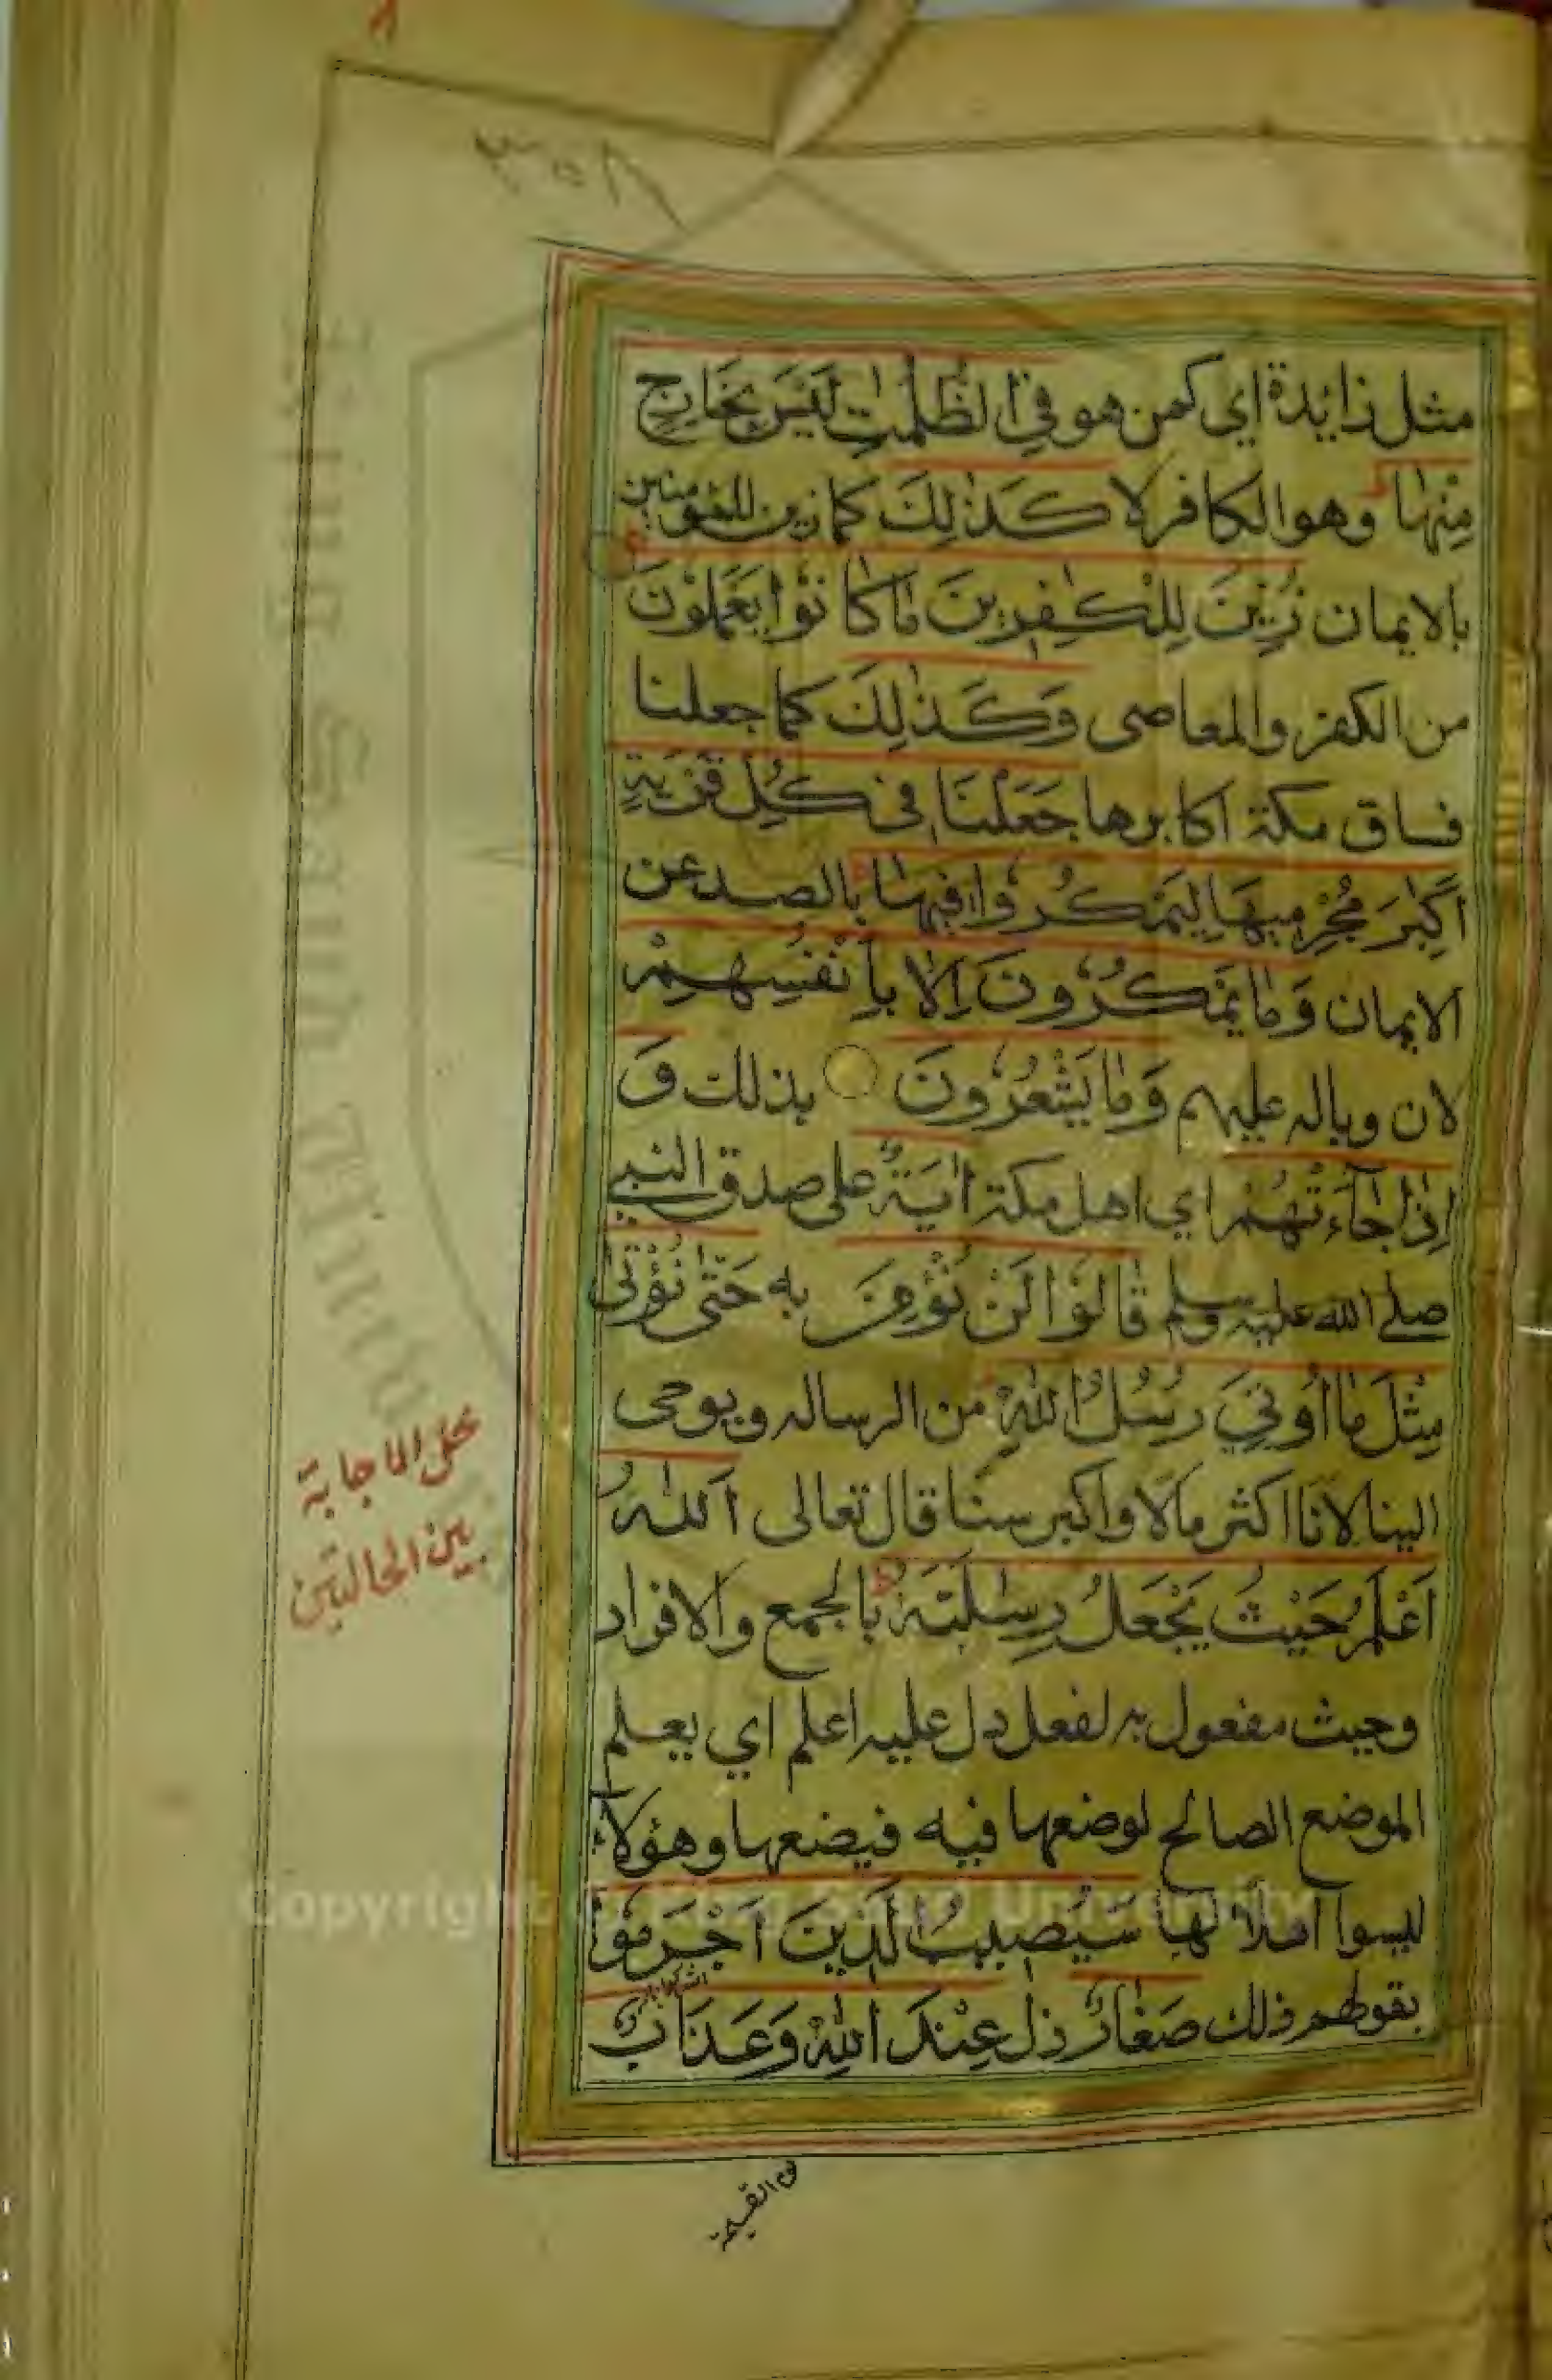 مثل زائدة اي كمن هو فِي الظُّلُمٰتِ لَيْسَ بِخَارِجٍ
مِنْهَا وهو الكافر لا كَذٰلِكَ كما زين للمؤمنين
بالايمان زُيِّنَ لِلْكٰفِرِيْنَ مَا كَانُوْا يَعْمَلُوْنَ
من الكفر والمعاصى وَكَذٰلِكَ كما جعلنا
فساق مكة اكابرها جَعَلْنَا فِى كُلِّ قَرْيَةٍ
اَكٰبِرَ مُجْرِمِيْهَا لِيَمْكُرُوْا فِيْهَا بالصد عن
الايمان وَمَا يَمْكُرُوْنَ اِلَّا بِاَنْفُسِهِمْ
لان وباله عليهم وَمَا يَشْعُرُوْنَ بذلك وَ
اِذَا جَآءَتْهُمْ اي اهل مكة اٰيَةٌ على صدق النبي
صلے الله عليه وسلم قَالُوْا لَنْ نُؤْمِنَ به حَتّٰى نُؤْتٰى
مِثْلَ مَا اُوْتِيَ رُسُلُ اللهِ من الرساله ويوحى
الينا لانا اكثر مالا واكبر سنا قال تعالى اَللهُ
اَعْلَمُ حَيْثُ يَجْعَلُ رِسٰلَتَهٗ بالجمع والافراد
وحيث مفعول به لفعل دل عليه اعلم اي يعلم
الموضع الصالح لوضعها فيه فيضعها وهؤلاء
ليسوا اهلا لها سَيُصِيْبُ الَّذِيْنَ اَجْرَمُوْا
بقولهم ذلك صَغَارٌ ذل عِنْدَ اللهِ وَعَذَابٌ
بين الحالتين
Copyright © King Saud University